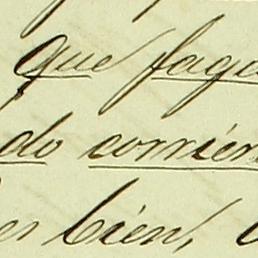 que faga
do corrien
es bien,